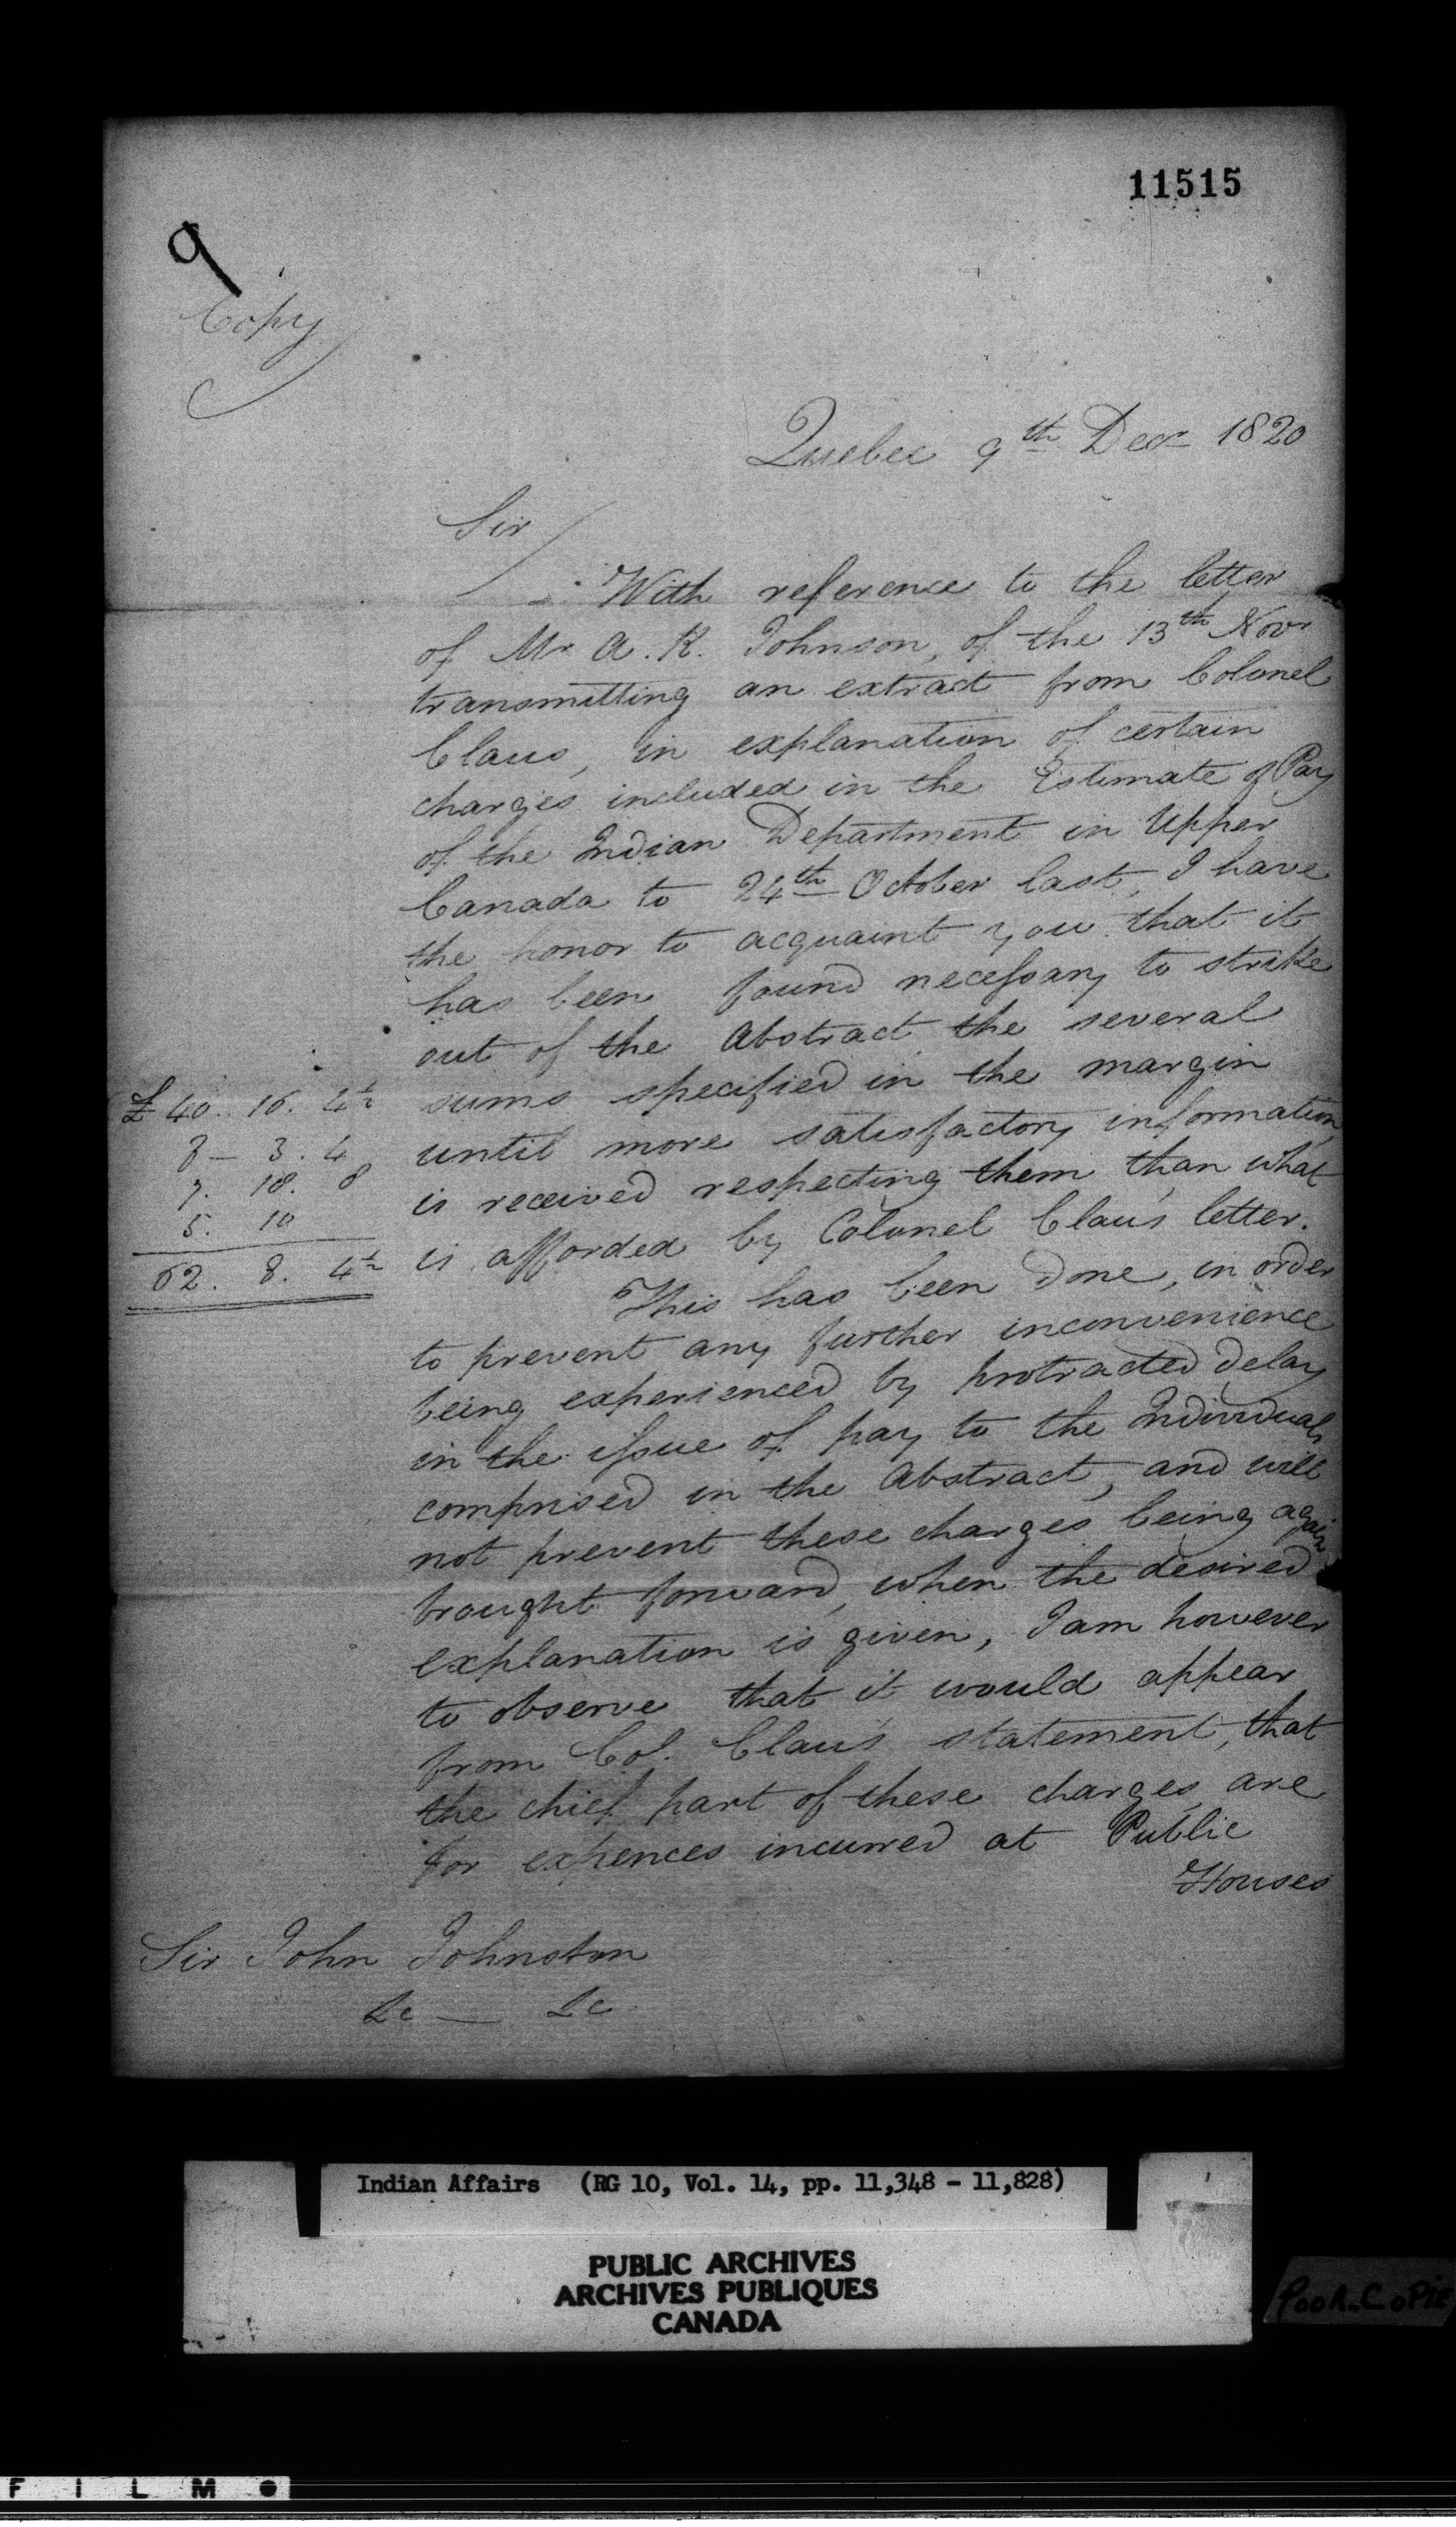 11515
9
Copy
Quebec 9th Decr 1820
Sir
With reference to the letter
of Mr A. K. Johnson, of the 13th Novr
transmitting an extract from Colonel
Claus, in explanation of certain
charges included in the Estimate of Pay
of the Indian Department in Upper
Canada to 24th October last, I have
the honor to acquaint you that it
has been found necessary to strike
out of the Abstract the several
sums specified in the margin
until more satisfactory information
is received respecting them than what
is afforded by Colonel Claus's letter.
£ 40. 16. 4½
8 — 3. 4
7. 18. 8
5. 10
62. 8. 4½
This has been done, in order
to prevent any further inconvenience
being experienced by protracted delay
in the issue of pay to the Individuals
comprised in the Abstract, and will
not prevent these charges being again
brought forward, when the desired
explanation is given, I am however
to observe that it would appear
from Col. Claus's statement, that
the chief part of these charges are
for expences incurred at Public
Houses
Sir John Johnston
&c — &c
Indian Affairs (RG 10, Vol. 14, pp. 11,348 - 11,828)
PUBLIC ARCHIVES
ARCHIVES PUBLIQUES
CANADA
POOR COPIE
FILM